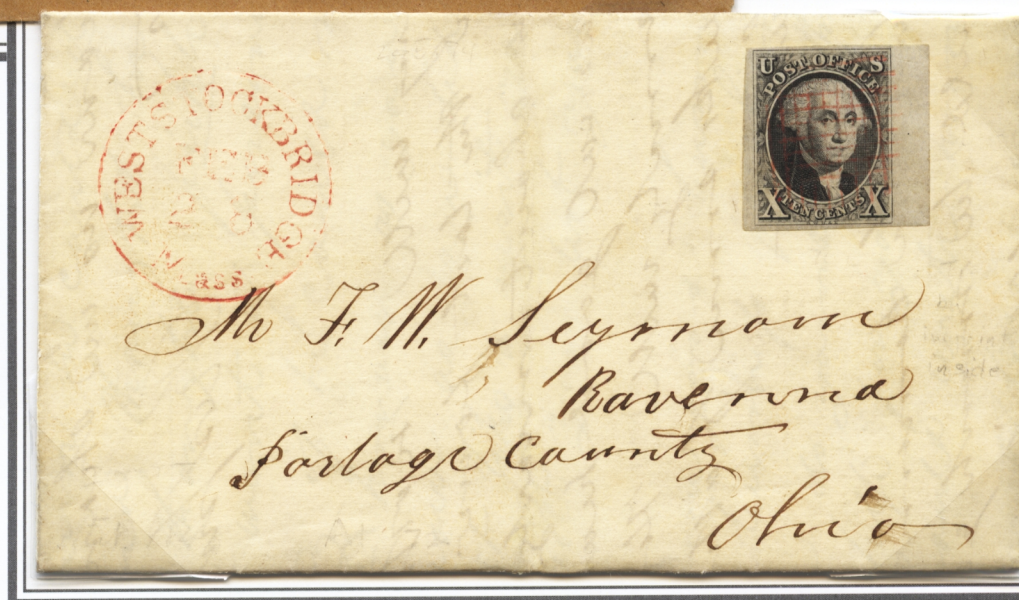 WEST STOCKBRIDGE
FEB
8
Mass
U S
POST OFFICE
X TEN CENTS X
Mr F. W. Seymour
Ravenna
Portage County
Ohio
inside